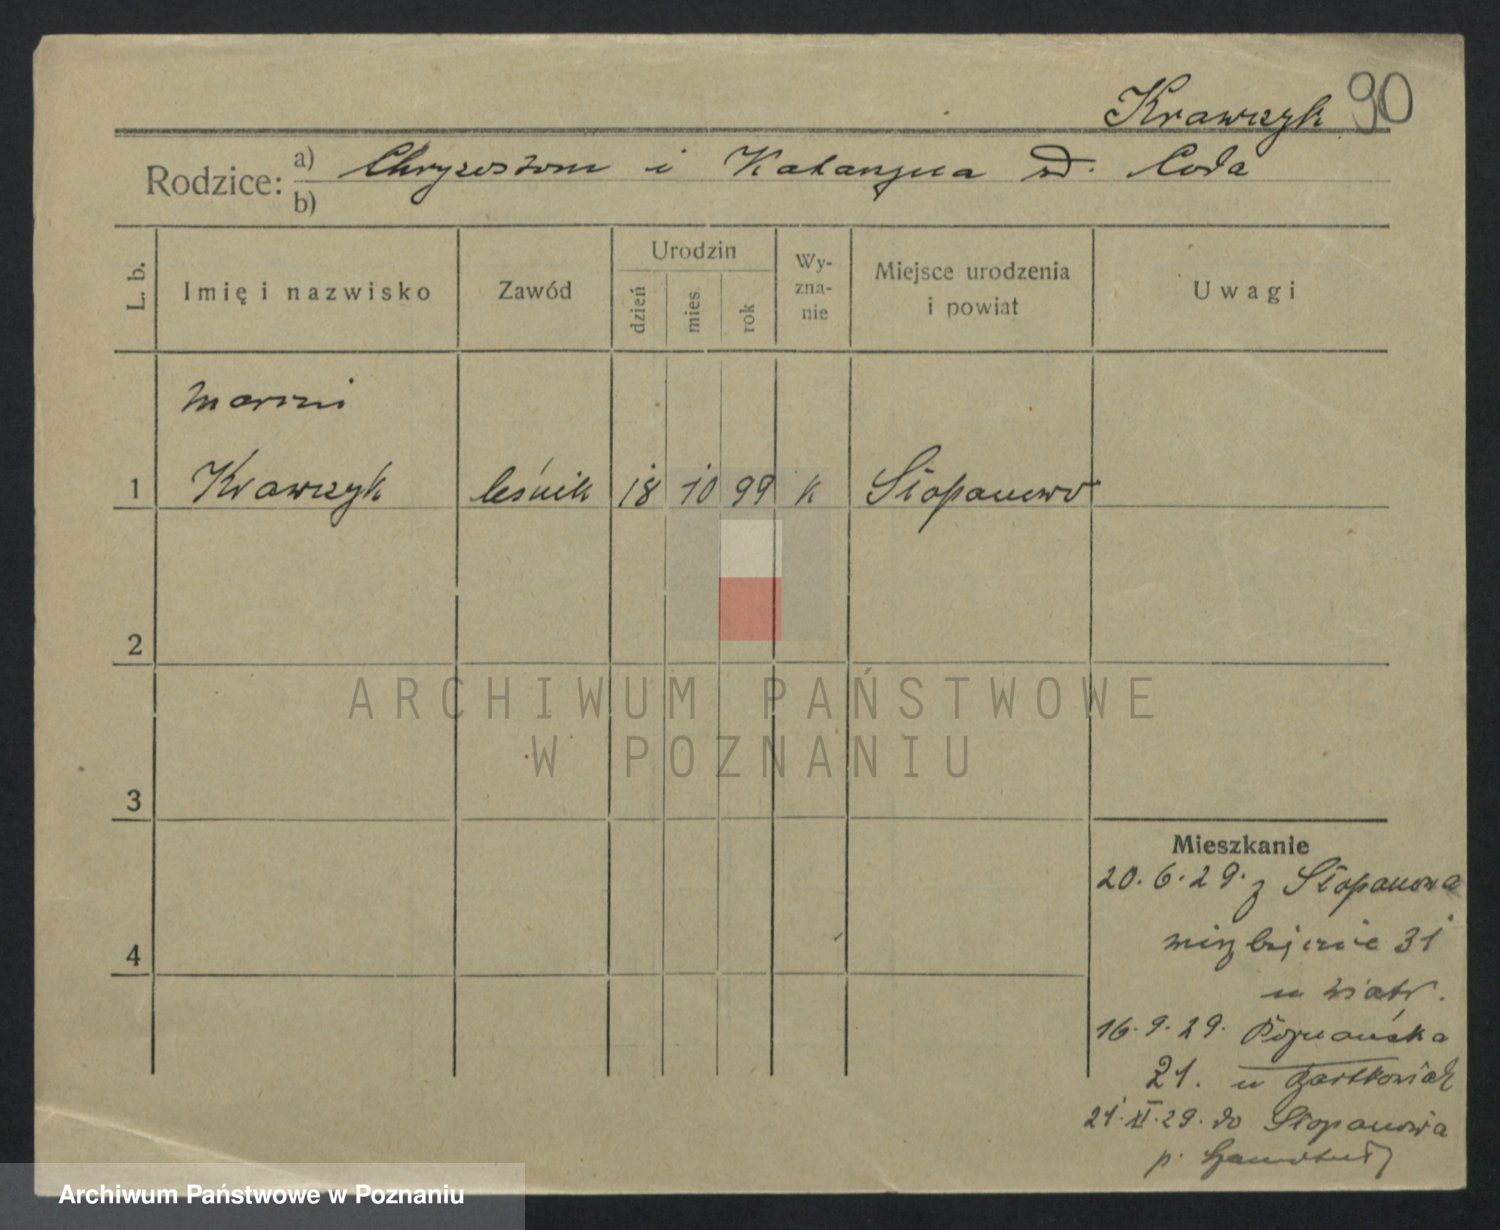 Krawczyk 90
Rodzice: a) Chryzostom i Katarzyna zd. Coda
b)
L. b. Imię i nazwisko Zawód Urodzin dzień mies. rok Wy-zna-nie Miejsce urodzenia i powiat Uwagi
Marcin
1 Krawczyk leśnik 18 10 99 k Słopanowo
2
ARCHIWUM PAŃSTWOWE
W POZNANIU
3
Mieszkanie
20.6.29. z Słopanowa
4
31
u
16.9.29. Poznańska
21. u Bartkowiak
21.XI.29. do Słopanowa
p. Szamotuły
Archiwum Państwowe w Poznaniu